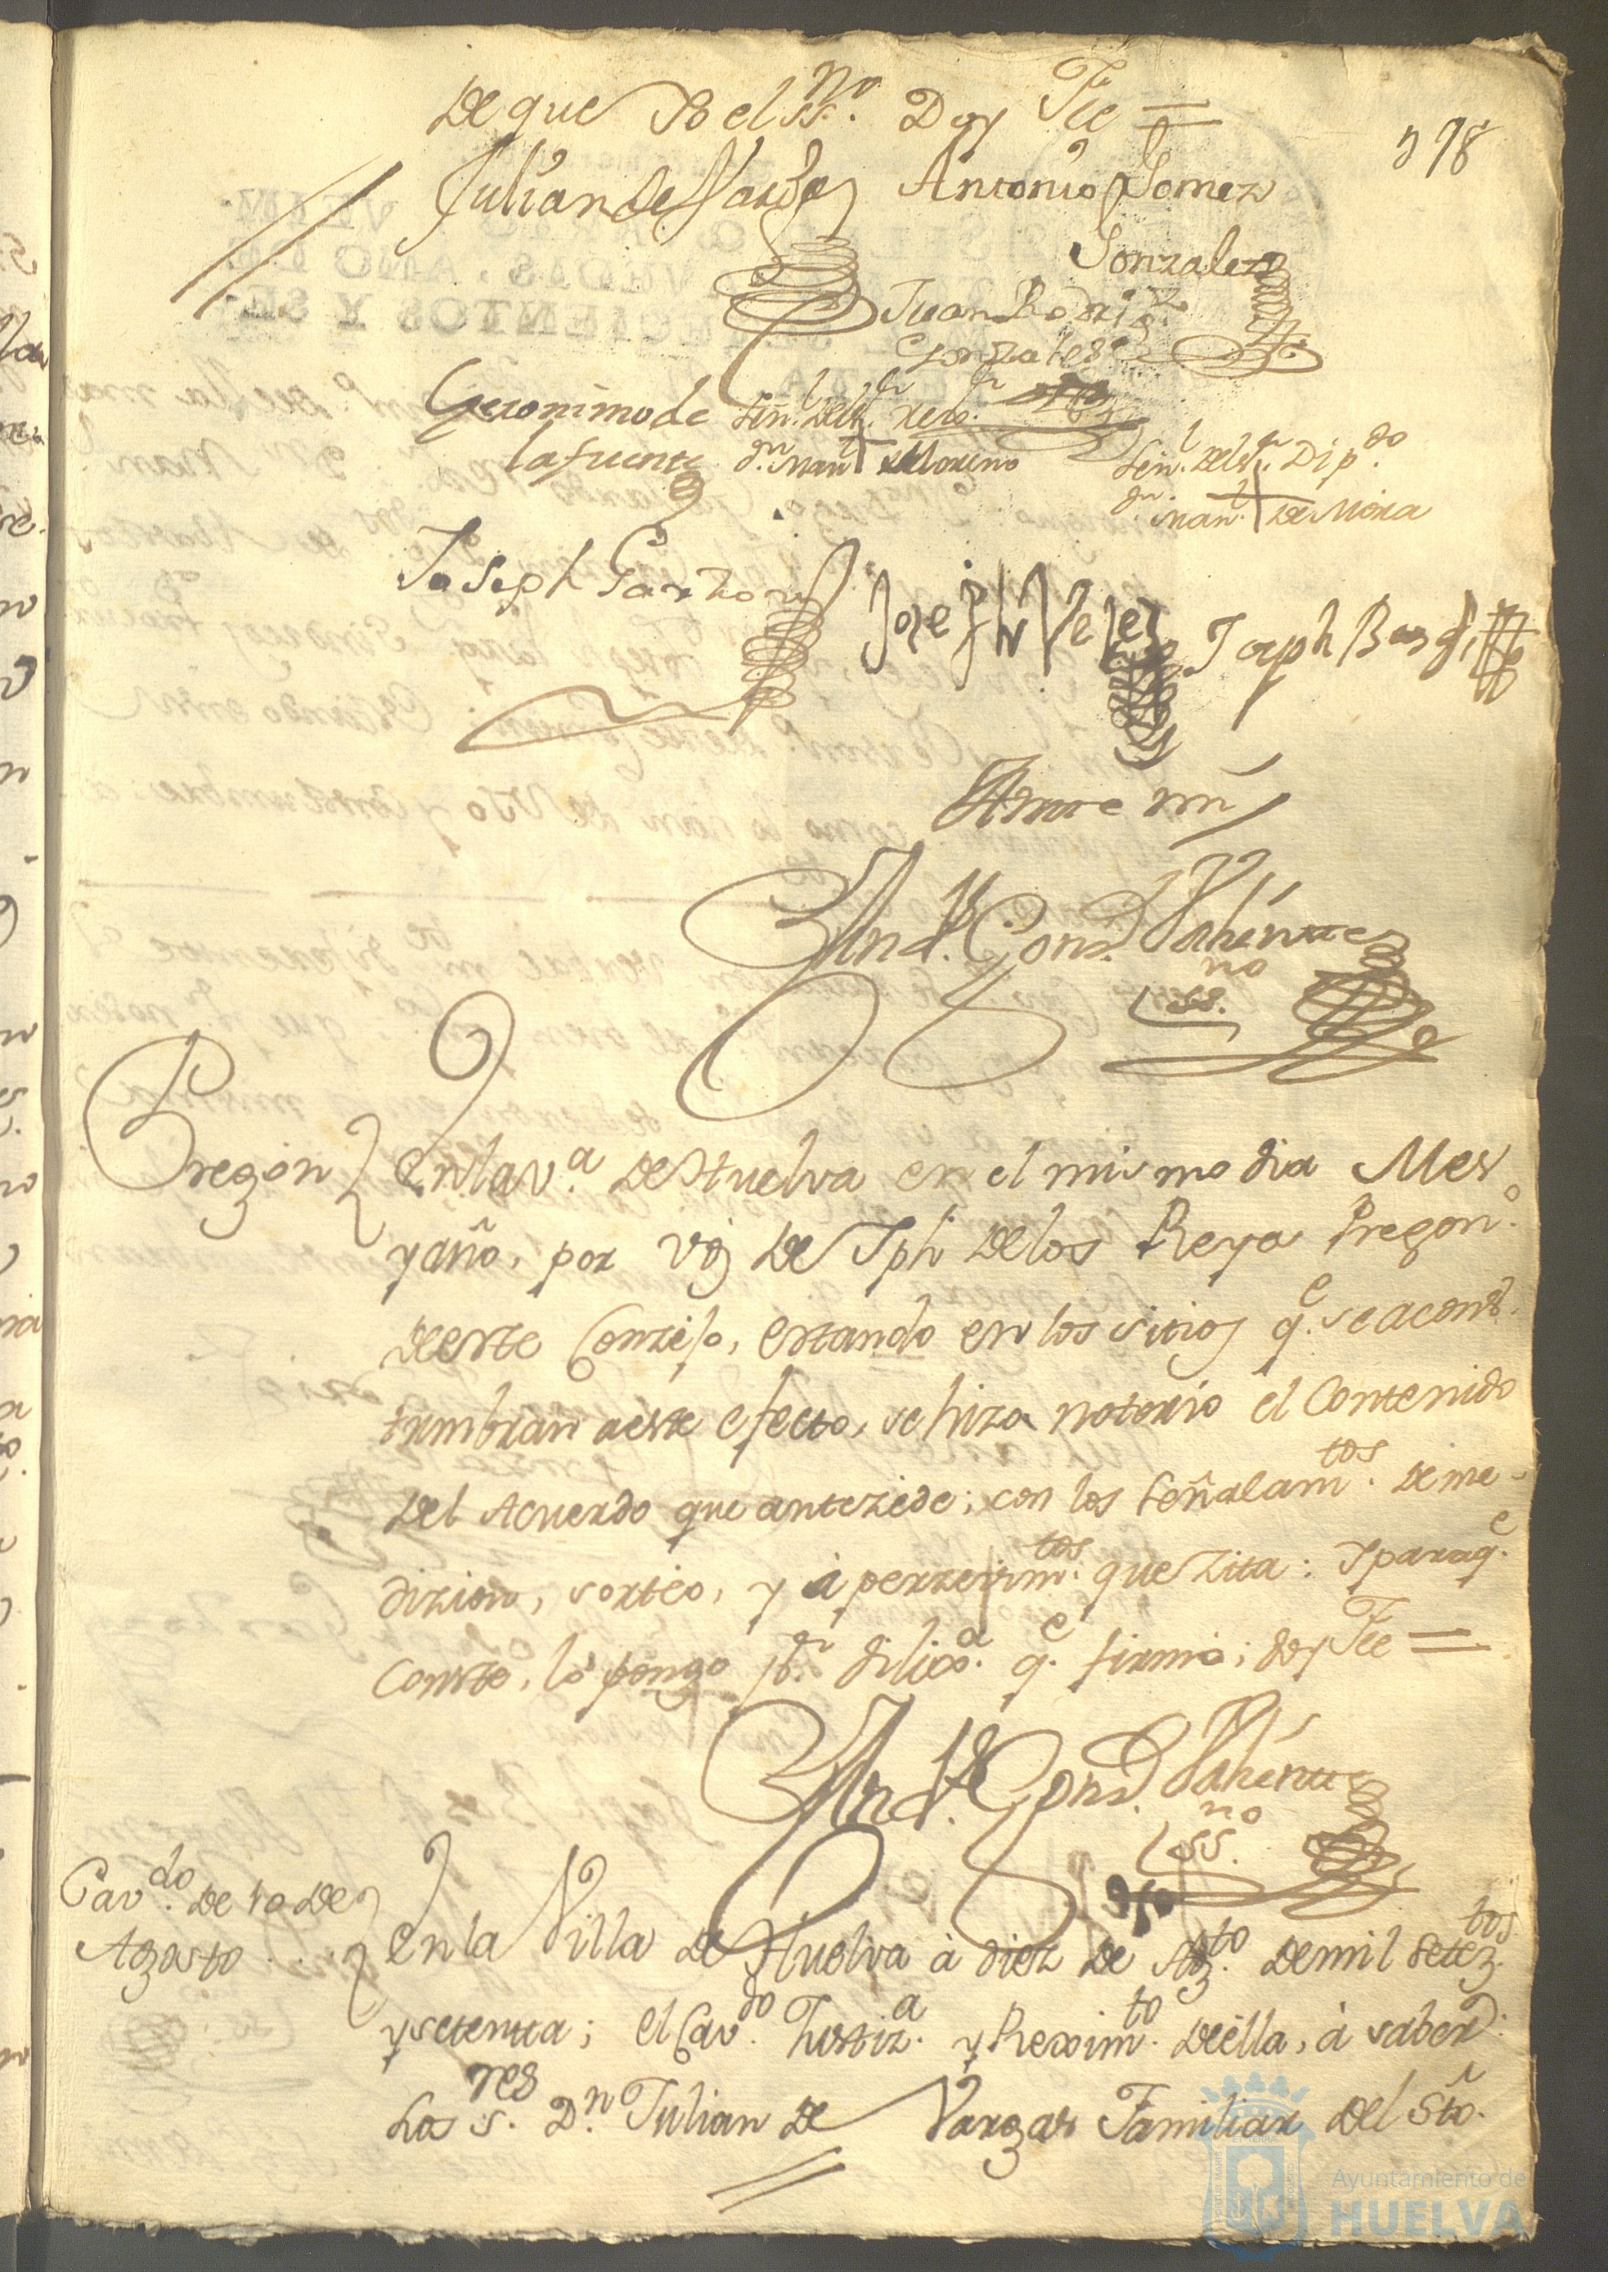 De que Yo el ss.no Doy Fee =
378
Julian de Vargas Antonio Gomez
Gonzalez
Juan Rodrig.z
Gonzales
Geronimo de
la fuente
Señ.l del s.r rexo.r
d.n Man.l Moreno
Señ.l del s.r Dip.do
d.n Man.l de Mora
Joseph Garzon Josephh Velez Joseph Bas
Ante mi
And.s Gonz.
ss.no
Pregon en la v.a de Huelva en el mismo dia Mes
y año, por voz de Jph de los Reyes Pregon.o
de este Conzejo, estando en los sitios q.e se acons.
tumbran a este efecto, se hizo notorio el Contenido
del Acuerdo que antezede; con los señalam.tos de me-
dizion, sorteo, y aperzevim.tos que zita: Y para q.e
Conste, lo pongo p.r dilix.a q.e firmo; doy Fee =
And.s Gonz.
ss.no
Cav.do de 10 de
Agosto . . .
en la Villa de Huelva à diez de Ag.to de mil setez.tos
y setenta; el Cav.do Justiz.a y Rexim.to de ella, à saber:
Los s.res D.n Julian de Vargas Familiar del Sto.
Ayuntamiento de
HUELVA